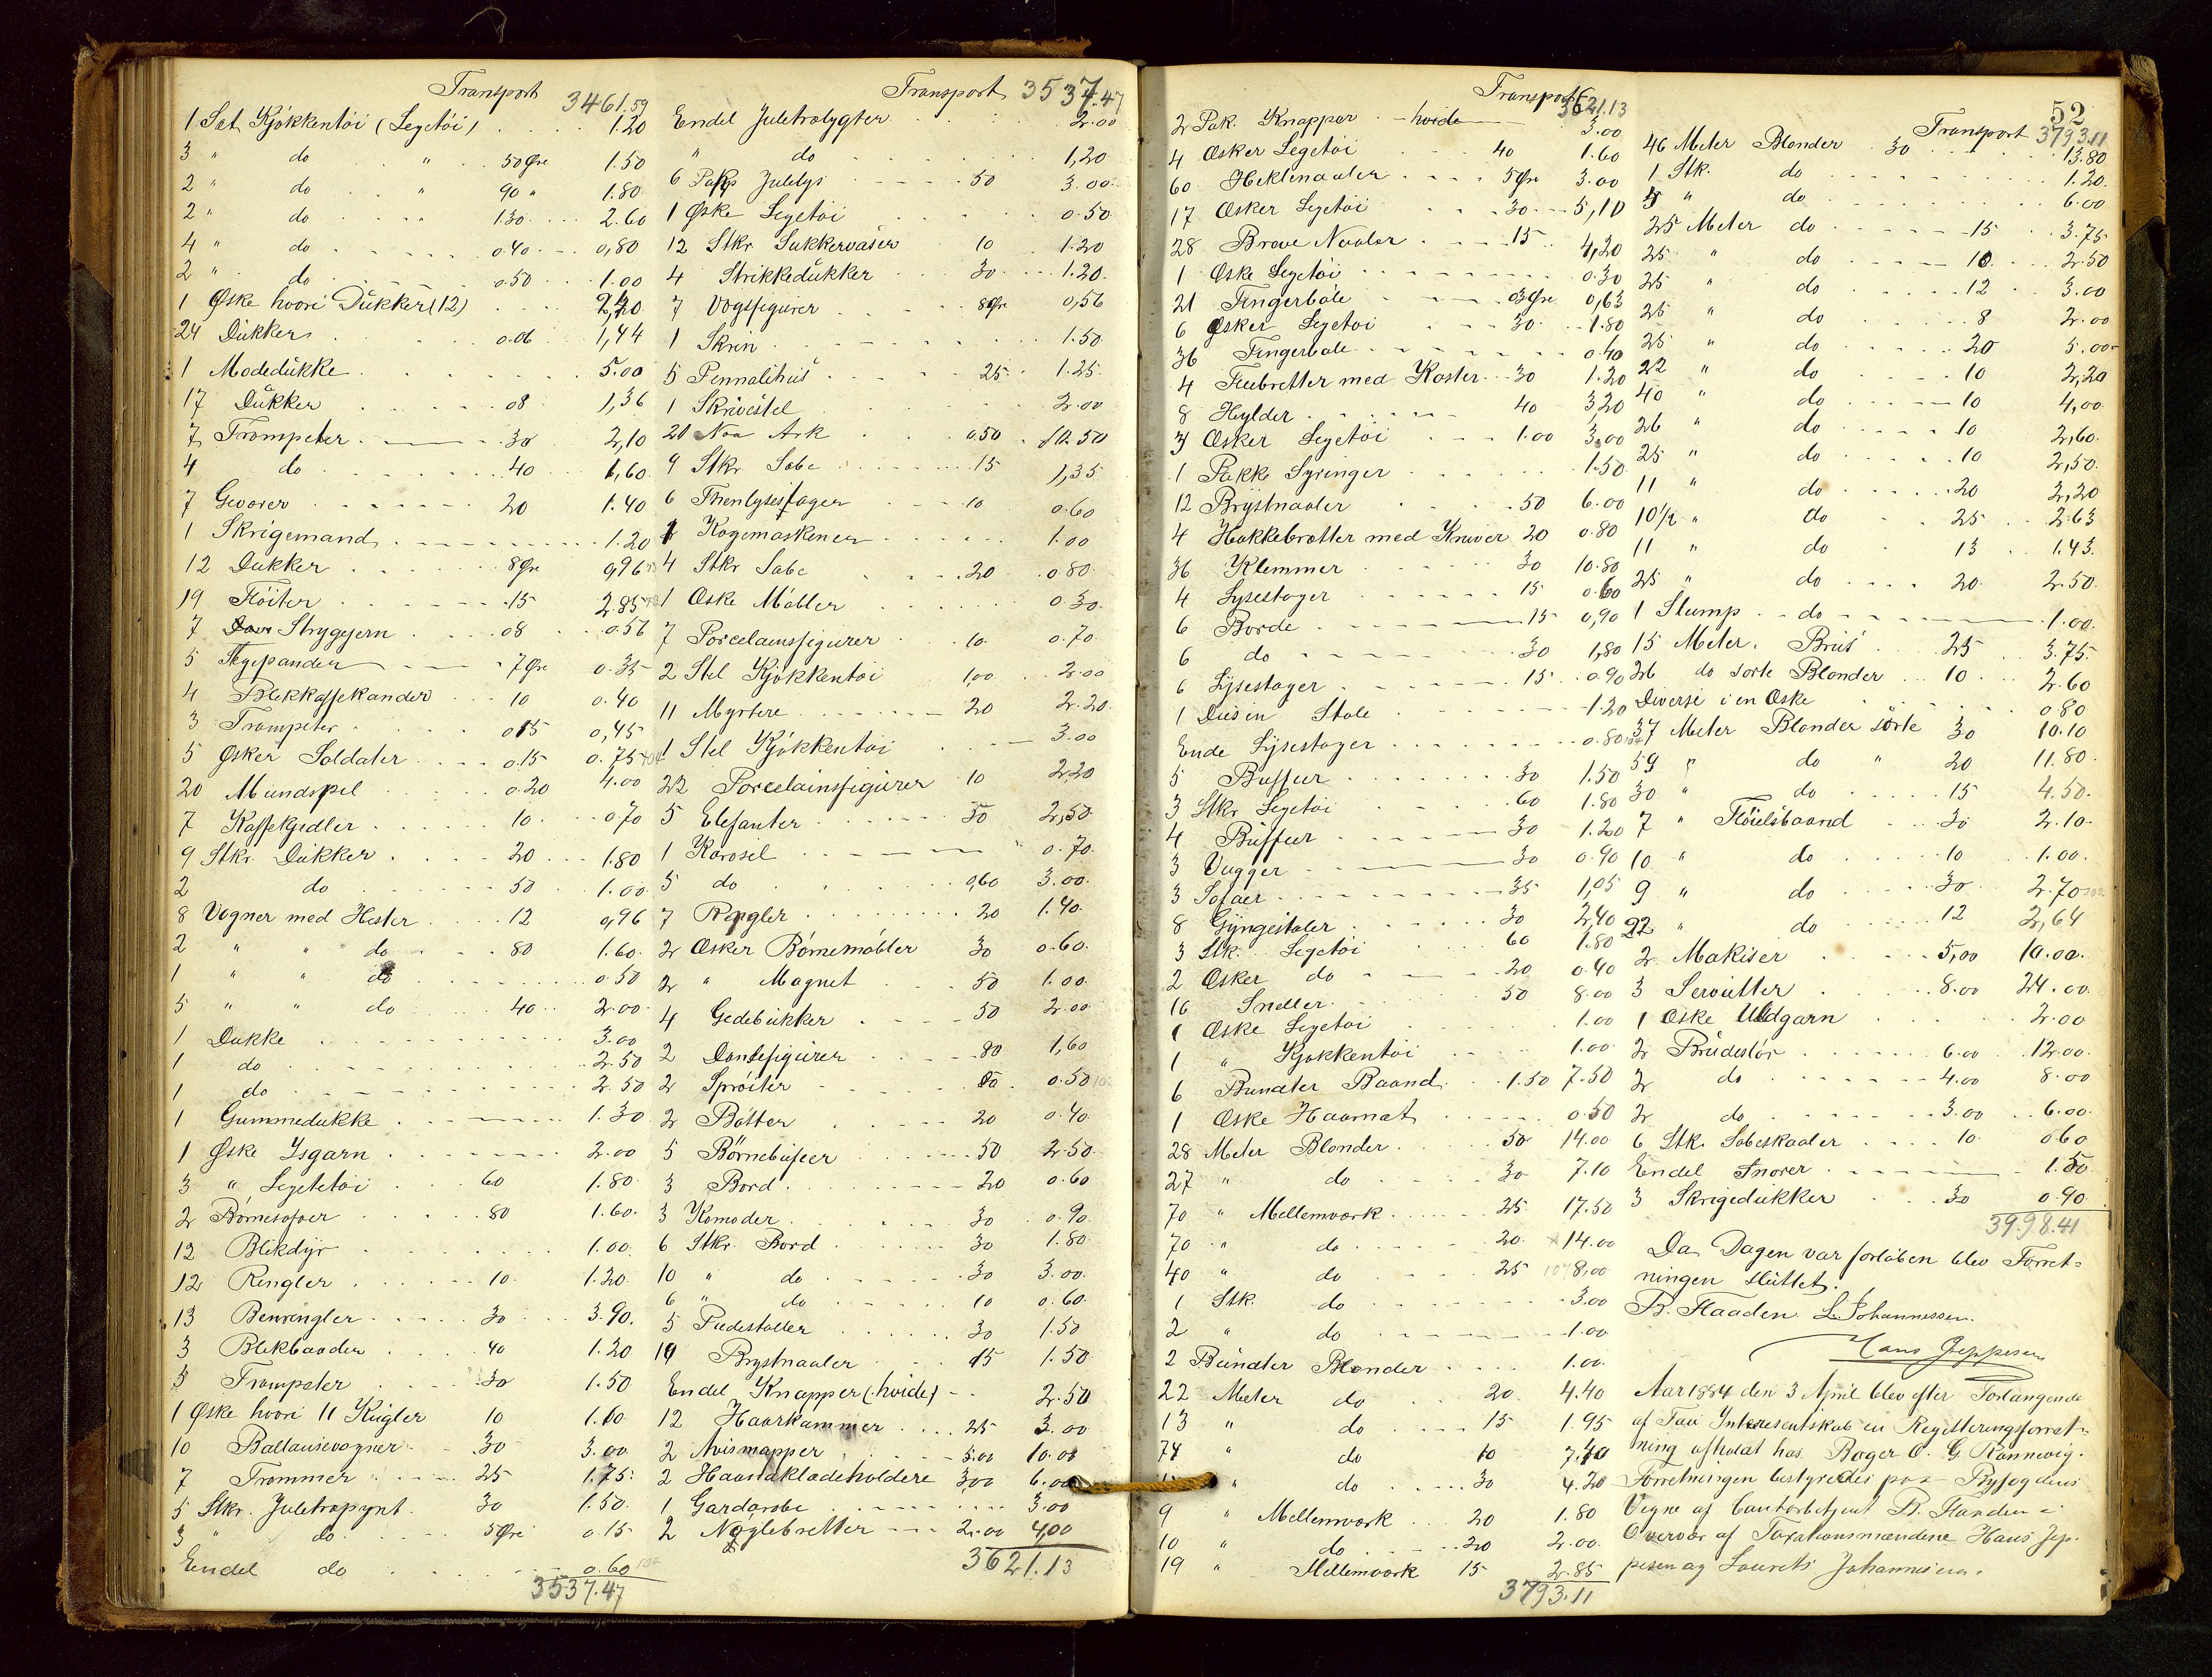 Transport 3461.59
1 Sæt Kjökkentöi (Legetöi) 1.20
3 " do " 50 Øre 1.50
2 " do " 90 " 1.80
2 " do " 1.30 2.60
4 " do 0.40 0,80
2 " do 0.50 1.00
1 Øske hvori Dukker (12) 2,40
24 Dukker 0.06 1,44
1 Modedukke 5.00
17 Dukker 08 1,36
7 Trompeter 30 2,10
4 do 40 1,60
7 Gevorer 20 1.40
1 Skrigemand 1.20
12 Dukker 8 Øre 0,96
19 Flöiter 15 2.85
7 Strygejern 08 0.56
5 Stegepander 7 Øre 0.35
4 Blekkaffekander 10 0.40
3 Trompeter 015 0,45
5 Øsker Soldater 0.15 0.75
20 Mundspil 0.20 4.00
7 Kaffekjedler 10 070
9 Stkr. Dukker 20 1.80
2 do 50 1.00
8 Vogner med Hester 12 0,96
2 " " do 80 1.60
1 " " do 0.50
5 " " do 40 2.00
1 Dukke 3.00
1 do 2.50
1 do 2.50
1 Gummedukke 1.30
1 Øske Isgarn 2.00
3 " Legetetöi 60 1.80
2 Börnesofaer 80 1.60
12 Blikdyr 1.00
12 Rengler 10 1.20
13 Benrengler 30 3.90
3 Blekbaader 40 1.20
5 Trompeter 30 1.50
1 Øske hvori 11 Kugler 10 1.10
10 Ballansevogner 30 3.00
7 Trommer 25 1.75
5 Stkr. Juletrapynt 30 1.50
3 " do 5 Øre 0.15
Endel do 0.60
3537.47
Transport 3537.47
Endel Juletrælygter 2.00
" do 1,20
6 Pakker Julelys 50 3.00
1 Øske Legetöi 0.50
12 Stkr Sukkervaser 10 1.20
4 Strikkedukker 30 1.20
7 Vogsfigurer 8 Øre 0,56
1 Skrin 1.50
5 Pennalihus 25 1.25
1 Skrivestel 2.00
21 Noa Ark 0.50 10.50
9 Stkr. Sæbe 15 1,35
6 Thenlysestager 10 0.60
1 Kogemaskener 1.00
4 Stkr Sæbe 20 0.80
1 Øske Möbler 0.30
7 Porcelainsfigurer 10 0.70
2 Stel Kjökkentöi 1,00 2.00
11 Myrtere 20 2.20
1 Stel Kjökkentöi 3.00
22 Porcelainsfigurer 10 2,20
5 Elefanter 50 2,50
1 Karosel 0.70
5 do 0,60 3.00
7 Rangler 20 1.40
2 Øsker Börnemöbler 30 0.60
2 " Magnet 50 1.00
4 Gedebukker 50 2.00
2 Dansefigurer 80 1,60
2 Spröiter 0.50
2 Bötter 20 0.40
5 Börnebufeer 50 2.50
3 Bord 20 0.60
3 Komoder 30 0.90
6 Stkr. Bord 30 1.80
10 " do 30 3.00
6 " do 10 0.60
5 Pudestaller 30 1.50
10 Brystnaaler 15 1.50
Endel Knapper (hvide) 2.50
12 Haarkammer 25 3.00
2 Avismapper 5.00 10.00
2 Haandklædeholdere 300 6.00
1 Garderobe 3.00
2 Nöglebretter 2.00 4,00
3621.13
Transport 3621.13
2 Pak. Knapper hvide 3.00
4 Øsker Legetöi 40 1.60
60 Heklenaaler 5 Øre 3.00
17 Øsker Legetöi 30 5,10
28 Breve Naaler 15 4,20
1 Øske Legetöi 0.30
21 Fingerböle 03 Øre 0,63
6 Øsker Legetöi 30 1.80
36 Fingerböle 0.40
4 Feiebretter med Koster 30 1.20
8 Hylder 40 3.20
3 Øsker Legetöi 1.00 3.00
1 Pakke Syringer 1.50
12 Brystnaaler 50 6.00
4 Hakkebrætter med Kniver 20 0.80
36 Klemmer 30 10.80
4 Lysestager 15 0.60
6 Borde 15 0,90
6 do 30 1,80
6 Lysestager 15 0.90
1 Dusin Stole 1.20
Ende Lysestager 0.80
5 Buffeer 30 1.50
3 Stkr Legetöi 60 1.80
4 Buffeer 30 1.20
3 Vugger 30 0.90
3 Sofaer 35 1,05
8 Gyngestoler 30 2,40
3 Stk. Legetöi 60 1.80
2 Øsker do 20 0.40
16 Sneller 50 8.00
1 Øske Legetöi 1.00
1 " Kjøkkentöi 1.00
6 Bundter Baand 1.50 7.50
1 Øske Haarnæt 0.50
28 Meter Blonder 50 14.00
27 " do 30 7.10
70 " Mellemværk 25 17.50
70 " do 20 14.00
40 " do 25 8,00
1 Stk. do 3.00
2 " do 1.00
2 Bundter Blonder 1.00
22 Meter do 20 4.40
13 " do 15 1.95
74 " do 10 7.40
" do 30 4.20
9 " Mellemværk 20 1.80
10 " do 20 2.00
19 " Mellemværk 15 2.85
3793.11
52
Transport 3793.11
46 Meter Blonder 30 13.80
1 Stk. do 1.20
5 " do 6.00
25 Meter do 15 3.75
25 " do 10 2.50
25 " do 12 3.00
25 " do 8 2.00
25 " do 20 5.00
22 " do 10 2,20
40 " do 10 4,00
26 " do 10 2,60
25 " do 10 2,50
11 " do 20 2,20
10½ " do 25 2.63
11 " do 13 1.43
25 " do 20 2.50
1 Stump do 1.00
15 Meter. Brus 25 3.75
26 do sorte Blonder 10 2.60
Diversi i en Øske 0.80
37 Meter Blonder sorte 30 10.10
59 " do " 20 11.80
30 " do 15 4.50
7 " Flöielsbaand 30 2.10
10 " do 10 1.00
9 " do 30 2.70
22 " do 12 2,64
2 Makiser 5,00 10.00
3 Servutter 8.00 24.00
1 Øske Uldgarn 2.00
2 Brudeslör 6.00 12.00
2 do 4.00 8.00
2 do 3.00 6.00
6 Stk. Sæbeskaaler 10 0.60
Endel Snorer 1.50
3 Skrigedukker 30 0.90
3998.41
Da Dagen var forlöben blev Forret-
ningen sluttet.
B. Flaaden L. Johannessen.
Hans Jeppesen
Aar 1884 den 3 April blev efter Forlangende
af Tau Interesentskab en Registreringsforret-
ning afholdt hos Bager O. G. Rannevig.
Forretningen bestyredes paa Byfogdens
Vegne af Contorbetjent B. Flaaden i
Overvær af Taxtionsmændene Hans Jep-
pesen og Laurets Johannesen.